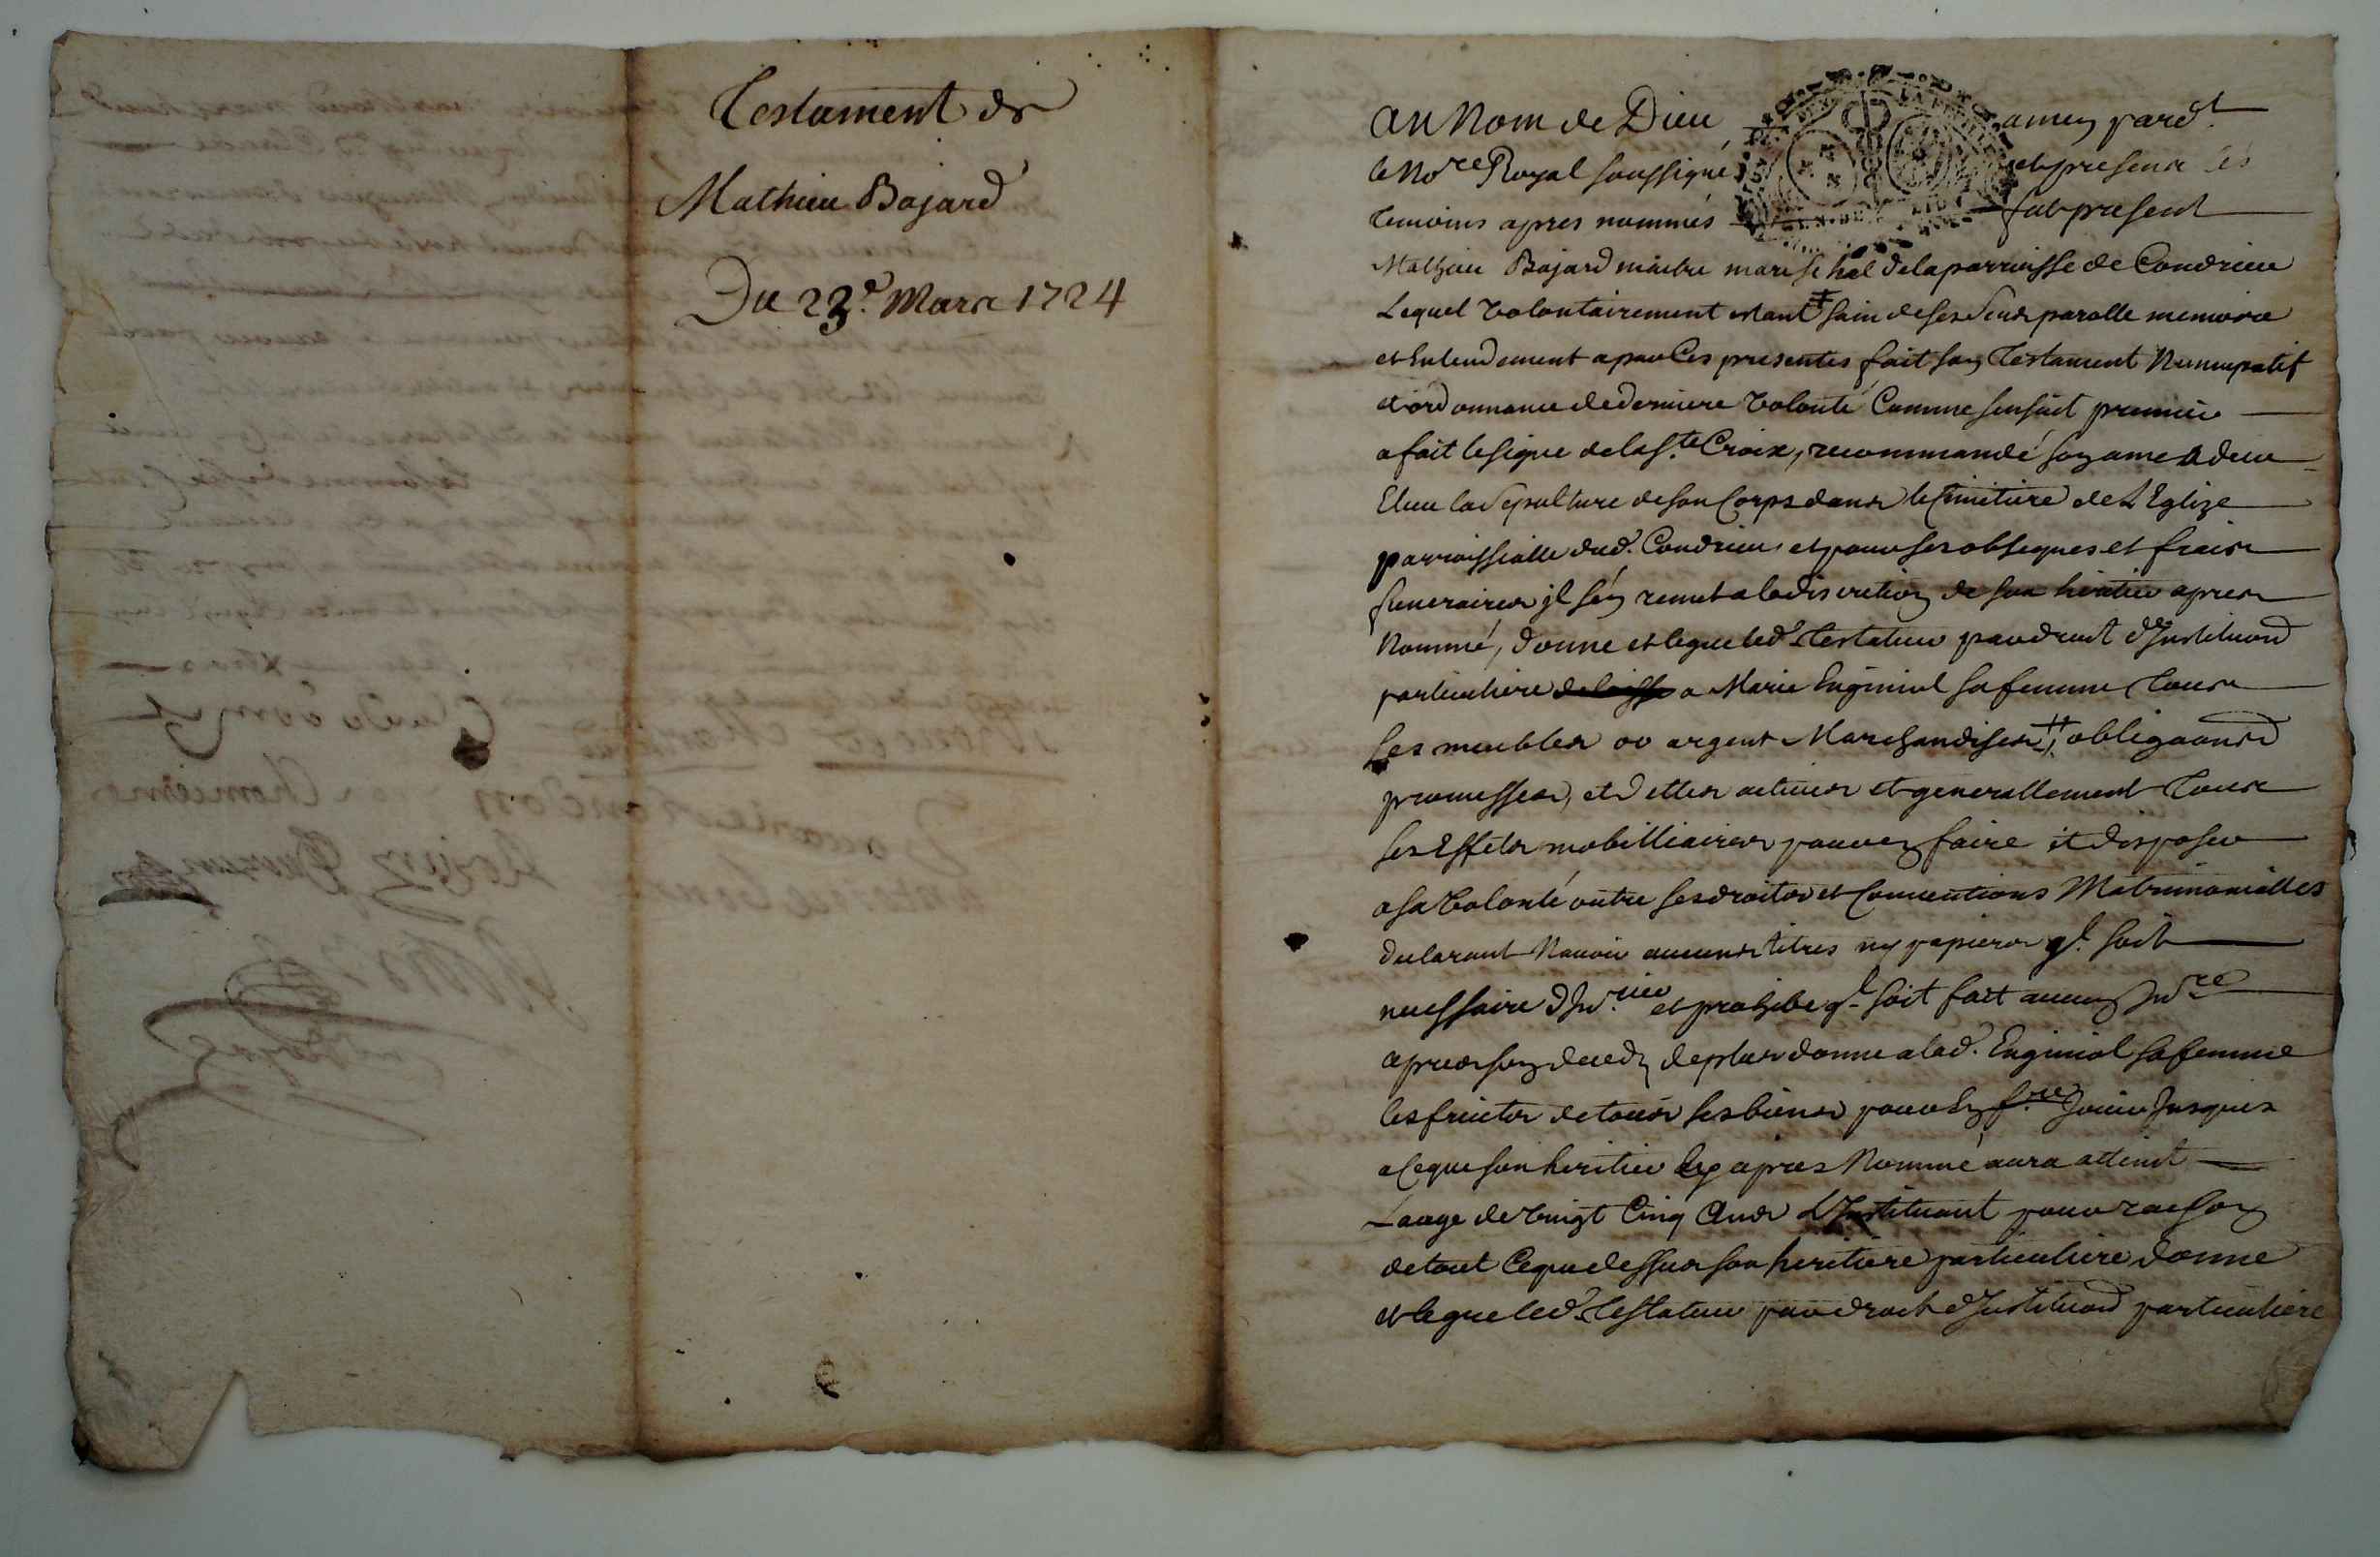 Testament de
Mathieu Bajard
Du 23e. Mars 1724
Au Nom de Dieu amen pardt.
le Nore Royal soussigné et presens les
temoins apres nommés fut present
Mathieu Bajard maitre mareschal de la parroisse de Condrieu
Lequel volontairement estant sain de ses sens parolle memoire
et entendement a par ces presentes fait son testament Nuncupatif
et ordonnance de derniere volonté comme sensuit premier
a fait le signe de la Ste Croix, recommandé son ame a dieu
Eleu la sepulture de son corps dans le cimitiere de L'Eglize
parroissialle dud. Condrieu et pour ses obseques et frais
funeraires jl sen remet a la discretion de son heritier apres
Nommé, donne et legue led. testateur par droit d'Institution
particuliere a Marie Enginiol sa femme tous
ses meubles or argent Marchandises obligaons
promesses, et dettes actives et generallement tous
ses Effets mobilliaires pour en faire et disposer
a sa volonté outre ses droits et conventions Matrimonialles
declarant N'avoir aucuns titres ny papiers ql. soit
necessaire d'Inv.rier et prohibe ql soit fait aucun Invre
apres son deceds de plus donne a lad. Enginiol sa femme
les fruits de tous ses biens pour en Jouir Jusques
a ce que son heritier cy apres Nommé aura atteint
L'aage de vingt cinq ans L'Instituant pour raison
de tout ce que dessus son heritiere particuliere donne
et legue led. testateur par droit d'Institution particuliere